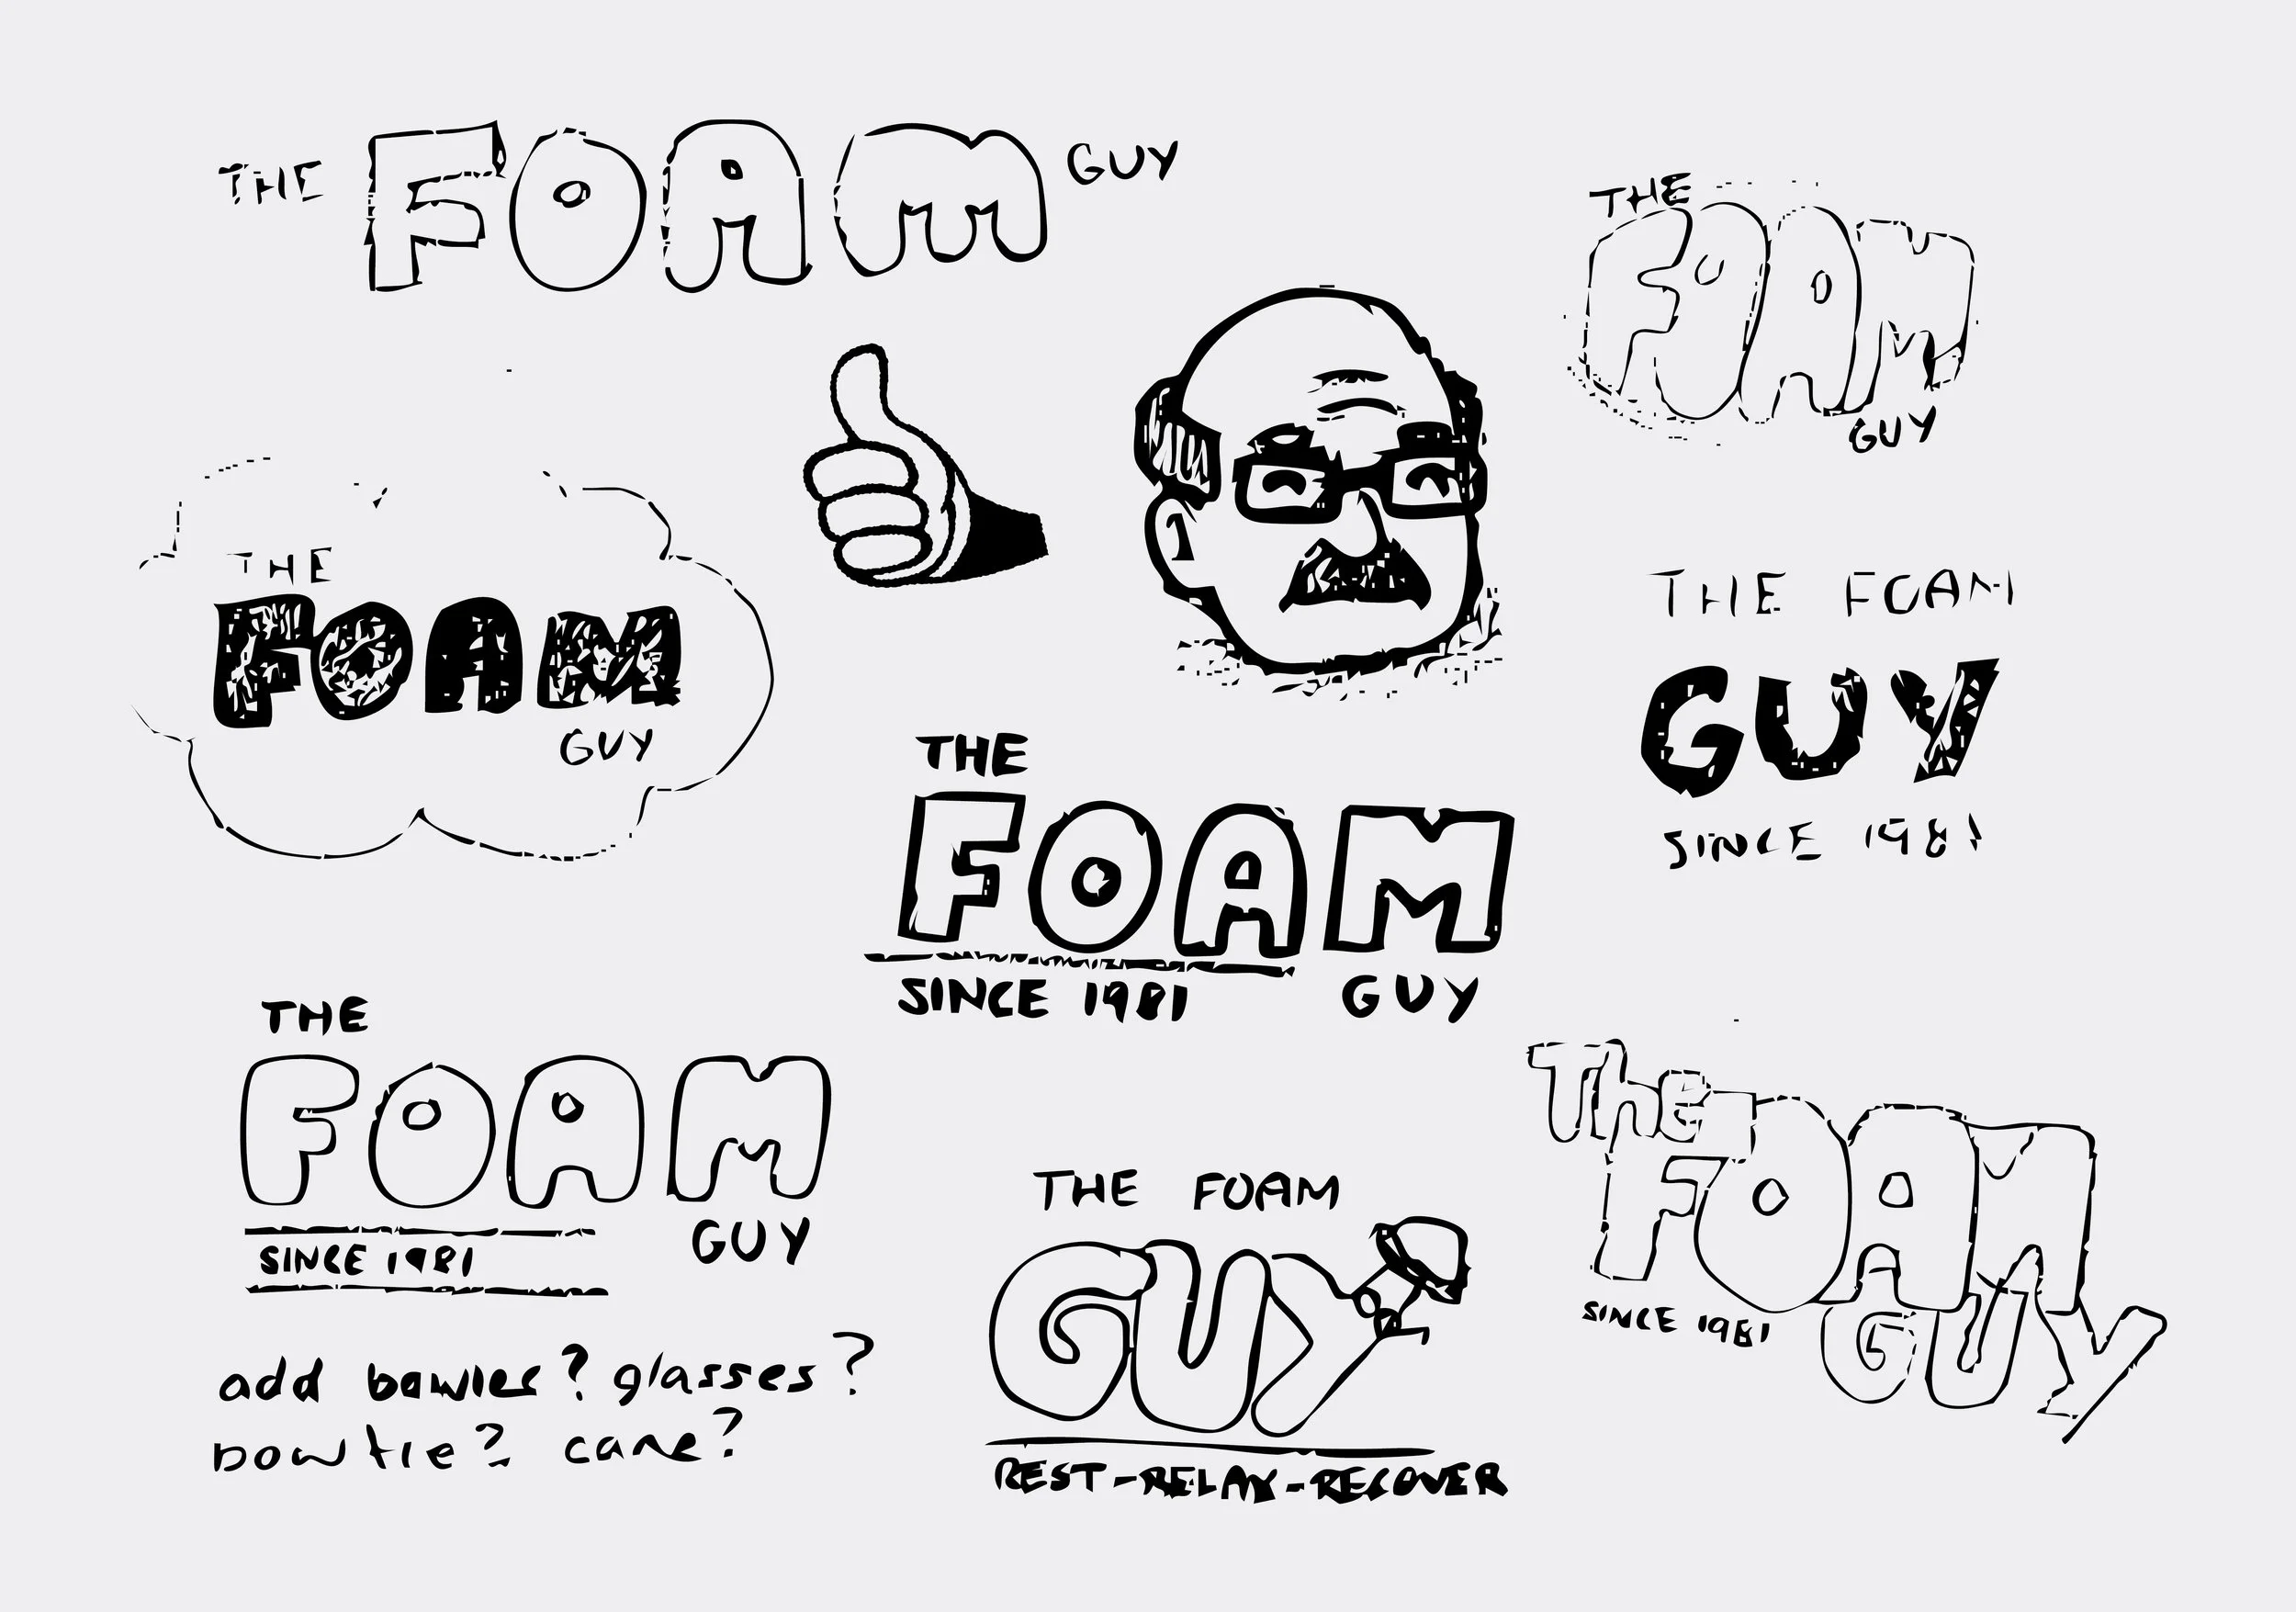 THE FOAM GUY
THE
FOAM
GUY
THE
FOAM
GUY
THE FOAM
GUY
SINCE 1981
THE
FOAM
SINCE 1981 GUY
THE
FOAM
SINCE 1981 GUY
The
FOAM
SINCE 1981 GUY
THE FOAM
GUY
REST-RELAX-RECOVER
add ? glasses?
bowtie? cane?